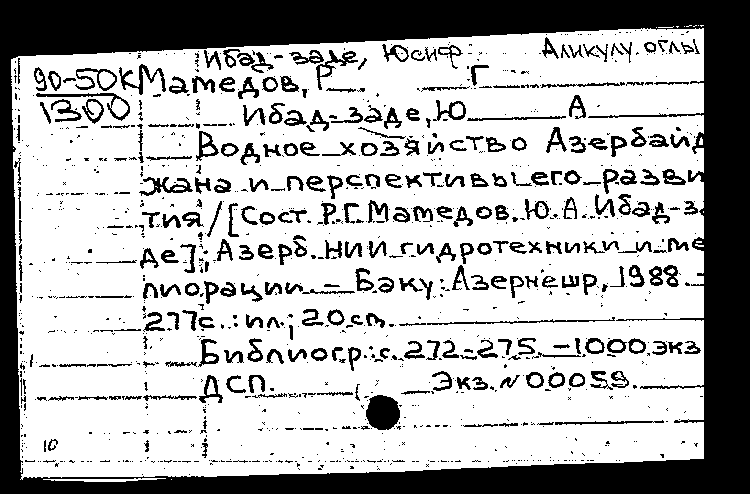 Ибад-заде, Юсиф Аликулу оглы
90-50К Мамедов, Р Г
1300 Ибад-заде, Ю А
Водное хозяйство Азербайд
жана и перспективы его разви
тия / [Сост. Р.Г. Мамедов, Ю.А. Ибад-за
де]; Азерб. НИИ гидротехники и ме
лиорации. - Баку: Азернешр, 1988. -
277с.: ил; 20см.
Библиогр.: с. 272-275. - 1000 экз
ДСП. Экз. №00059.
10